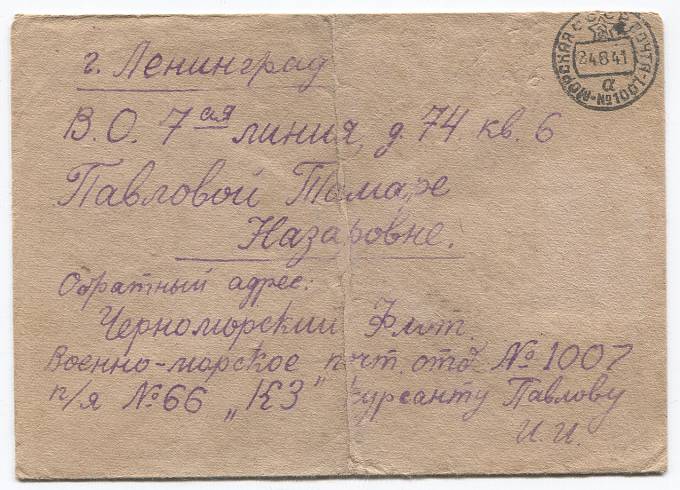 г. Ленинград
В.О. 7ая линия, д. 74 кв. 6
Павловой Тамаре
Назаровне.
Обратный адрес:
Черноморский Флот.
Военно-морское почт. отд № 1007
п/я № 66 „КЗ" курсанту Павлову
И. И.
СССР
МОРСКАЯ ПОЧТА - № 1007
24 8 41
а